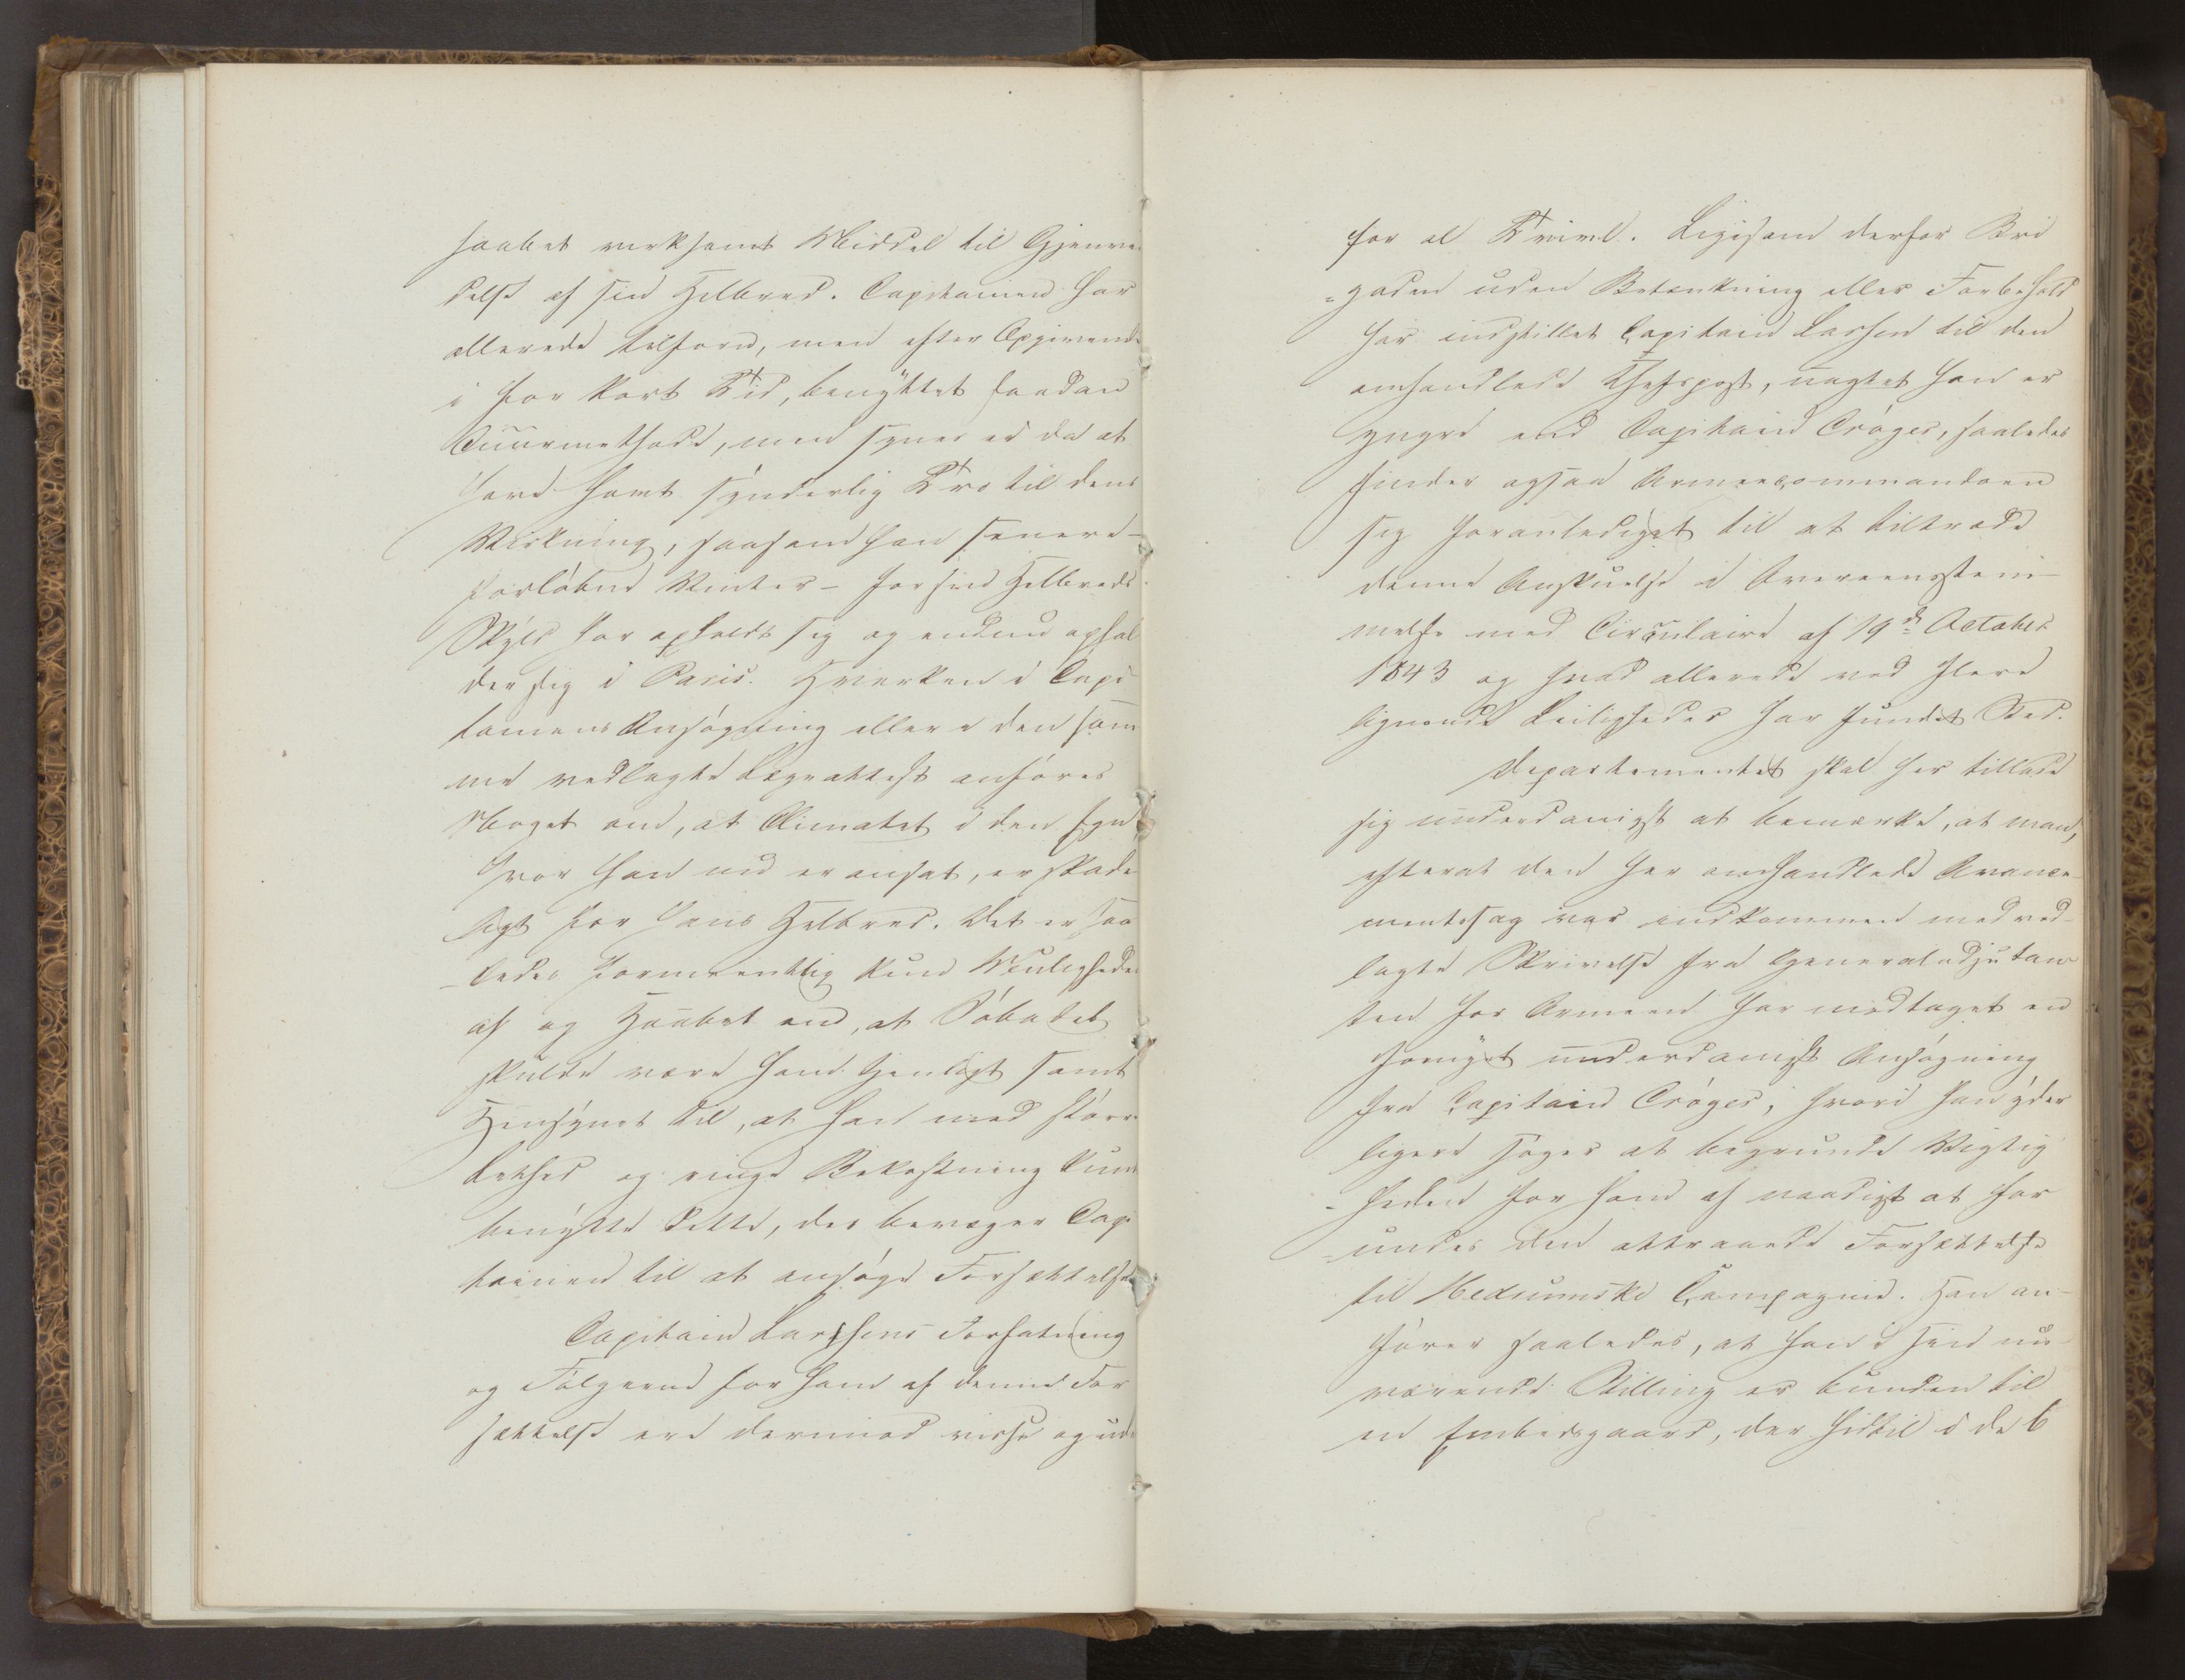 haabet virksomt Middel til Gjenvin
delse af sin Helbred. Capitainen har
allerede tilforn, men efter Opgivende
i for kort Tid, benyttet saadan
Cuurmethode, men synes ei da at
have havt synderlig Tro til dens
Virkning, saasom han senere –
forløbne Vinter – for sin Helbreds
Skyld har opholdt sig og endnu ophol
der sig i Paris. Hverken i Capi
tainens Ansøgning eller i den sam
me vedlagte Lægeattest anføres
Noget om, at Climatet i den Egn
hvor han nu er ansat, er skade
ligt for hans Helbred. Det er saa
ledes formeentlig kun Muligheden
af og Haabet om, at Søbadet
skulde være ham tjenligt samt
Hensynet til, at han med større
Lethed og ringe Bekostning kunde
benytte dette, der bevæger Capi
tainen til at ansøge Forsættelse.
Capitain Larssens Forfatning
og Følgerne for ham af denne For
sættelse ere derimod visse og uden
for al Tvivl. Ligesom derfor Bri
=gaden uden Betænkning eller Forbehold
har indstillet Capitain Larssen til den
omhandlede Chefspost, uagtet han er
yngre end Capitain Crøger, saaledes
finder ogsaa Armeecommandoen
sig foranlediget til at tiltræde
denne Anskuelse i Overeensstem-
melse med Circulaire af 19de October
1843 og hvad allerede ved flere
lignende Leiligheder har fundet Sted.
Departementet skal her tillade
sig underdanigst at bemærke, at man,
efterat den her omhandlede Avance-
mentssag var indkommen med ved-
lagte Skrivelse fra Generaladjutan-
ten for Armeen har modtaget en
fornyet underdanigst Ansøgning
fra Capitain Crøger, hvori han yder
ligere søger at begrunde Vigtig
=heden for ham af naadigst at for
=undes den attraaede Forsættelse
til Nedrumske Compagnie. Han an-
fører saaledes, at han i sin nu-
værende Stilling er bunden til
en Embedsgaard, der hidtil i de 6